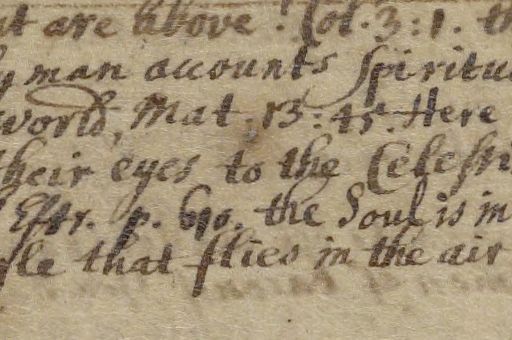 ut are above! Col. 3: 1. th
y man accounts spiritua
world, Mat. 13: 45. Here
their eyes to the Celesti
p. 610. the Soul is in
gle that flies in the air